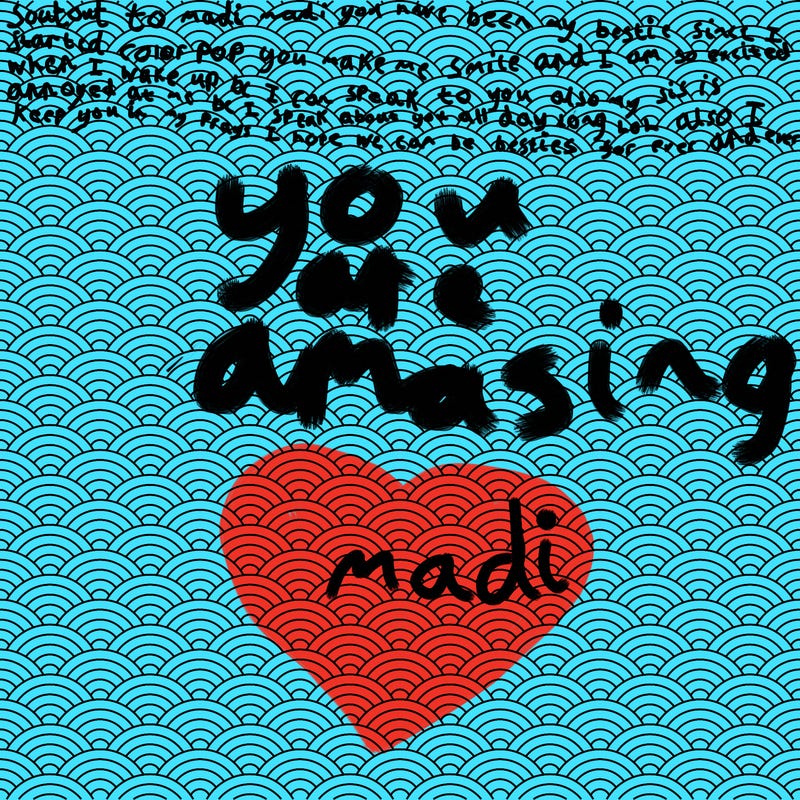 Soutout to madi madi you have been my bestie sinct I
started color pop you make me smile and I am so excited
when I wake up bc I can speak to you also my sis is
annoyed at me bc I speak about you all day long lol also I
keep you in my prays I hope we can be besties for ever and ever
you
are
amasing
madi